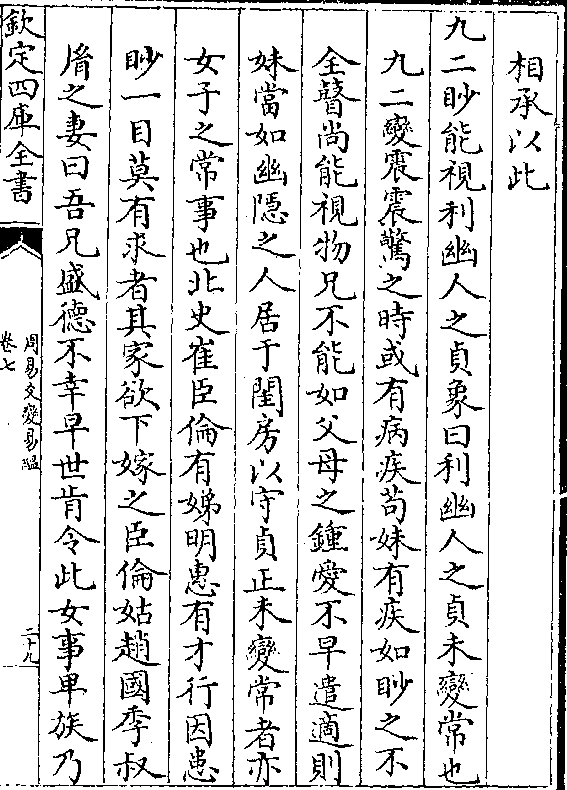 相承以此
九二眇能視利幽人之貞象曰利幽人之貞未變常也
九二變震震驚之時或有病疾苟妹有疾如眇之不
全瞽尚能視物兄不能如父母之鍾愛不早遣適則
妹當如幽隱之人居于閨房以守貞正未變常者亦
女子之常事也北史崔臣倫有娣明惠有才行因患
眇一目莫有求者其家欲下嫁之臣倫姑趙國李叔
胤之妻曰吾兄盛德不幸早世肯令此女事卑族乃
欽定四庫全書
周易文變易縕
卷七
二十九